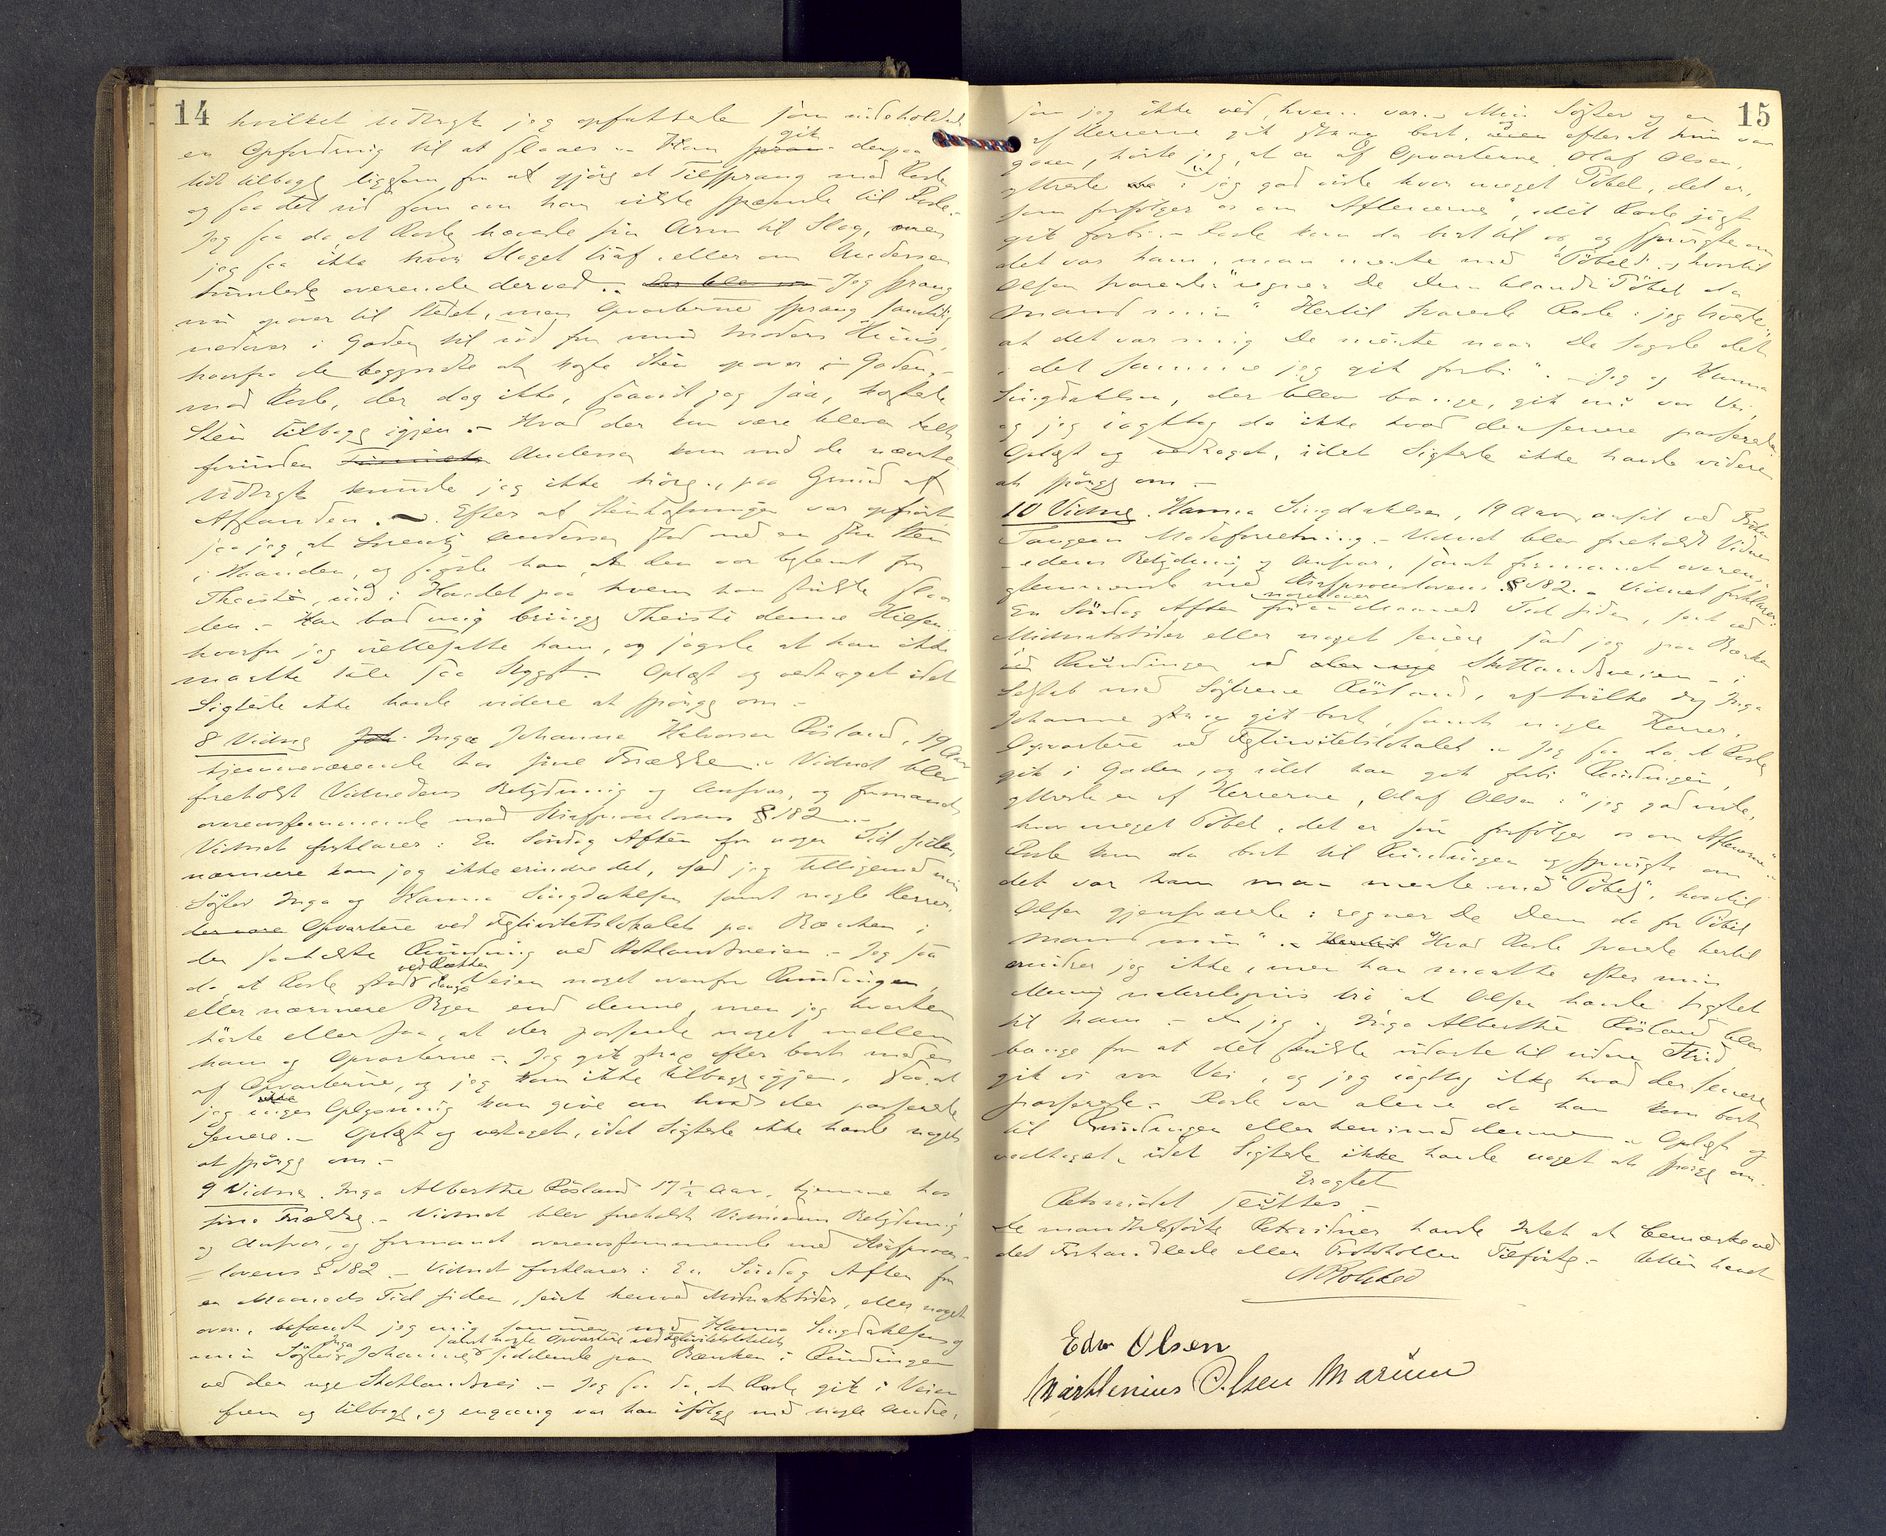 14
hvilket Udtryk jeg opfattede som indeholdt
en Opfordring til at slaaes. – Han gik derpaa
lidt tilbage ligesom for at gjøre et Tilsprang mod Rosle
og saa det ud som om han vilde spænde til Rosle.
Jeg saa da at Rosle hævede sin Arm til Slag, men
jeg saa ikke hvor Slaget traf eller om Andersen
tumlede overende derved. – Jeg sprang
nu opover til Stedet, men Opvarterne sprang samtidig
nedover i Gaden til ud for min Moders Huus,
hvorfra de begyndte at kaste Sten opover i Gaden
mod Rosle, der dog ikke, saavidt jeg saa, kastede
Sten tilbage igjen. – Hvad der kan være bleven talt
forinden Andersen kom med de nævnte
Udtryk kunde jeg ikke høre, paa Grund af
Afstanden. – Efter at Stenkastningen var ophørt
saa jeg, at Andersen stod med en stor Sten
i Haanden, og sagde han, at den var bestemt for
Theiste, ind i Hovedet paa hvem han skulde slaa
den. – Han bad mig bringe Theiste denne Hilsen
hvorfor jeg irettesatte ham, og sagde at han ikke
maatte tale saa stygt. – Oplæst og vedtaget idet
Sigtede ikke havde videre at spørge om. –
8 Vidne Inga Johanne Halvorsen Røsland, 19 Aar
hjemmeværende hos sine Forældre. – Vidnet blev
foreholdt Vidnedens Betydning og Ansvar, og formanet
overensstemmende med Strafproceslovens § 182. –
Vidnet forklarer: En Søndag Aften for nogen Tid siden,
nærmere kan jeg ikke erindre det, sad jeg tilligemed min
Søster Inga og Hanna Singdahlsen samt nogle Herrer,
Opvartere ved Festivitetslokalet paa Bænken i
den saakaldte Rundning ved Stotlandsveien. – Jeg saa
da at Rosle stod ved Rækken langs Veien noget ovenfor Rundingen,
eller nærmere Byen end denne, men jeg hverken
hørte eller saa, at der passerede noget mellem
ham og Opvarterne. – Jeg gik strax efter bort med en
af Opvarterne, og jeg kom ikke tilbage igjen, saa at
jeg ikke Oplysning kan give om hvad der passerede
senere. – Oplæst og vedtaget, idet Sigtede ikke havde noget
at spørge om. –
9 Vidne. Inga Alberthe Røsland 17½ Aar, hjemme hos
sine Forældre. – Vidnet blev foreholdt Vidnedens Betydning
og Ansvar, og formanet overensstemmende med Strafproces-
lovens § 182. – Vidnet forklarer: En Søndag Aften for
en Maaneds Tid siden, sent henved Midnatstider, eller noget
over, befandt jeg mig sammen med Hanna Singdahlsen og
min Søster Inga Johanne samt nogle Opvartere ved Festivitetslokalet siddende paa Bænken i Rundingen
ved den nye Stotlandsvei. – Jeg saa da, at Rosle gik i Veien
frem og tilbage, og engang var han ifølge med nogle Andre,
15
som jeg ikke ved, hvem var. – Min Søster og en
af Herrerne gik strax bort, men efterat hun var
gaaen, hørte jeg, at en af Opvarterne, Olaf Olsen,
yttrede: "jeg gad vide hvor meget Pøbel, det er,
som forfølger os om Aftenerne", idet Rosle just
gik forbi. – Rosle kom da bort til os og spurgte om
det var ham, man mente med "Pøbel", hvortil
Olsen svarede "regner De Dem blandt Pøbel da
Mand min" Hertil svarede Rosle: jeg hørte,
at det var mig De mente naar De sagde det
i det samme jeg gik forbi". – Jeg og Hanna
Singdahlsen, der blev bange, gik nu vor Vei,
og jeg iagttog da ikke hvad der senere passerede.
Oplæst og vedtaget, idet Sigtede ikke havde videre
at spørge om. –
10 Vidne. Hanna Singdahlsen, 19 Aar, ansat ved Frøken
Tangens Modeforretning. – Vidnet blev foreholdt Vidne-
edens Betydning og Ansvar, samt formanet overens-
stemmende med Strafproceslovens § 182. – Vidnet forklarer:
En Søndag Aften for en Maaneds Tid siden, sent ved
Midnatstider eller noget senere sad jeg paa Bænken
ved Rundingen ved Stotlandsveien – i
Selskab med Søstrene Røsland, af hvilke dog Inga
Johanne strax gik bort, samt nogle Herrer,
Opvartere ved Festivitetslokalet. – Jeg saa da at Rosle
gik i Gaden, og idet han gik forbi Rundingen,
yttrede en af Herrerne, Olaf Olsen: "jeg gad vide,
hvor meget Pøbel, det er som forfølger os om Aftenerne".
Rosle kom da bort til Rundingen og spurgte om
det var ham man mente med "Pøbel", hvortil
Olsen gjensvarede: regner De Dem da for Pøbel
Mand min". – Hvad Rosle svarede hertil
erindrer jeg ikke, men han maatte efter min
Mening naturligvis tro at Olsen havde sigtet
til ham. – Da jeg og Inga Alberthe Røsland blev
bange for at det skulde udarte til videre Strid
gik vi vor Vei, og jeg iagttog ikke hvad der senere
passerede. – Rosle var alene da han kom bort
til Rundingen eller henimod denne. – Oplæst og
vedtaget, idet Sigtede ikke havde noget at spørge om. –
Eragtet
Retsmødet sluttes. –
De mandtalsførte Retsvidner havde Intet at bemærke ved
det Forhandlede eller Protokollen Tilførte. – Retten hævet
Edv Olsen
Marthinius Olsen Marum